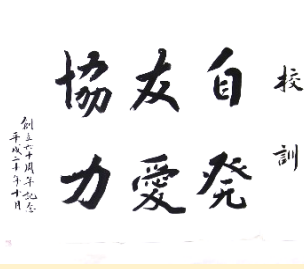 校訓
自発
友愛
協力
創立六十周年記念
平成二十年十月